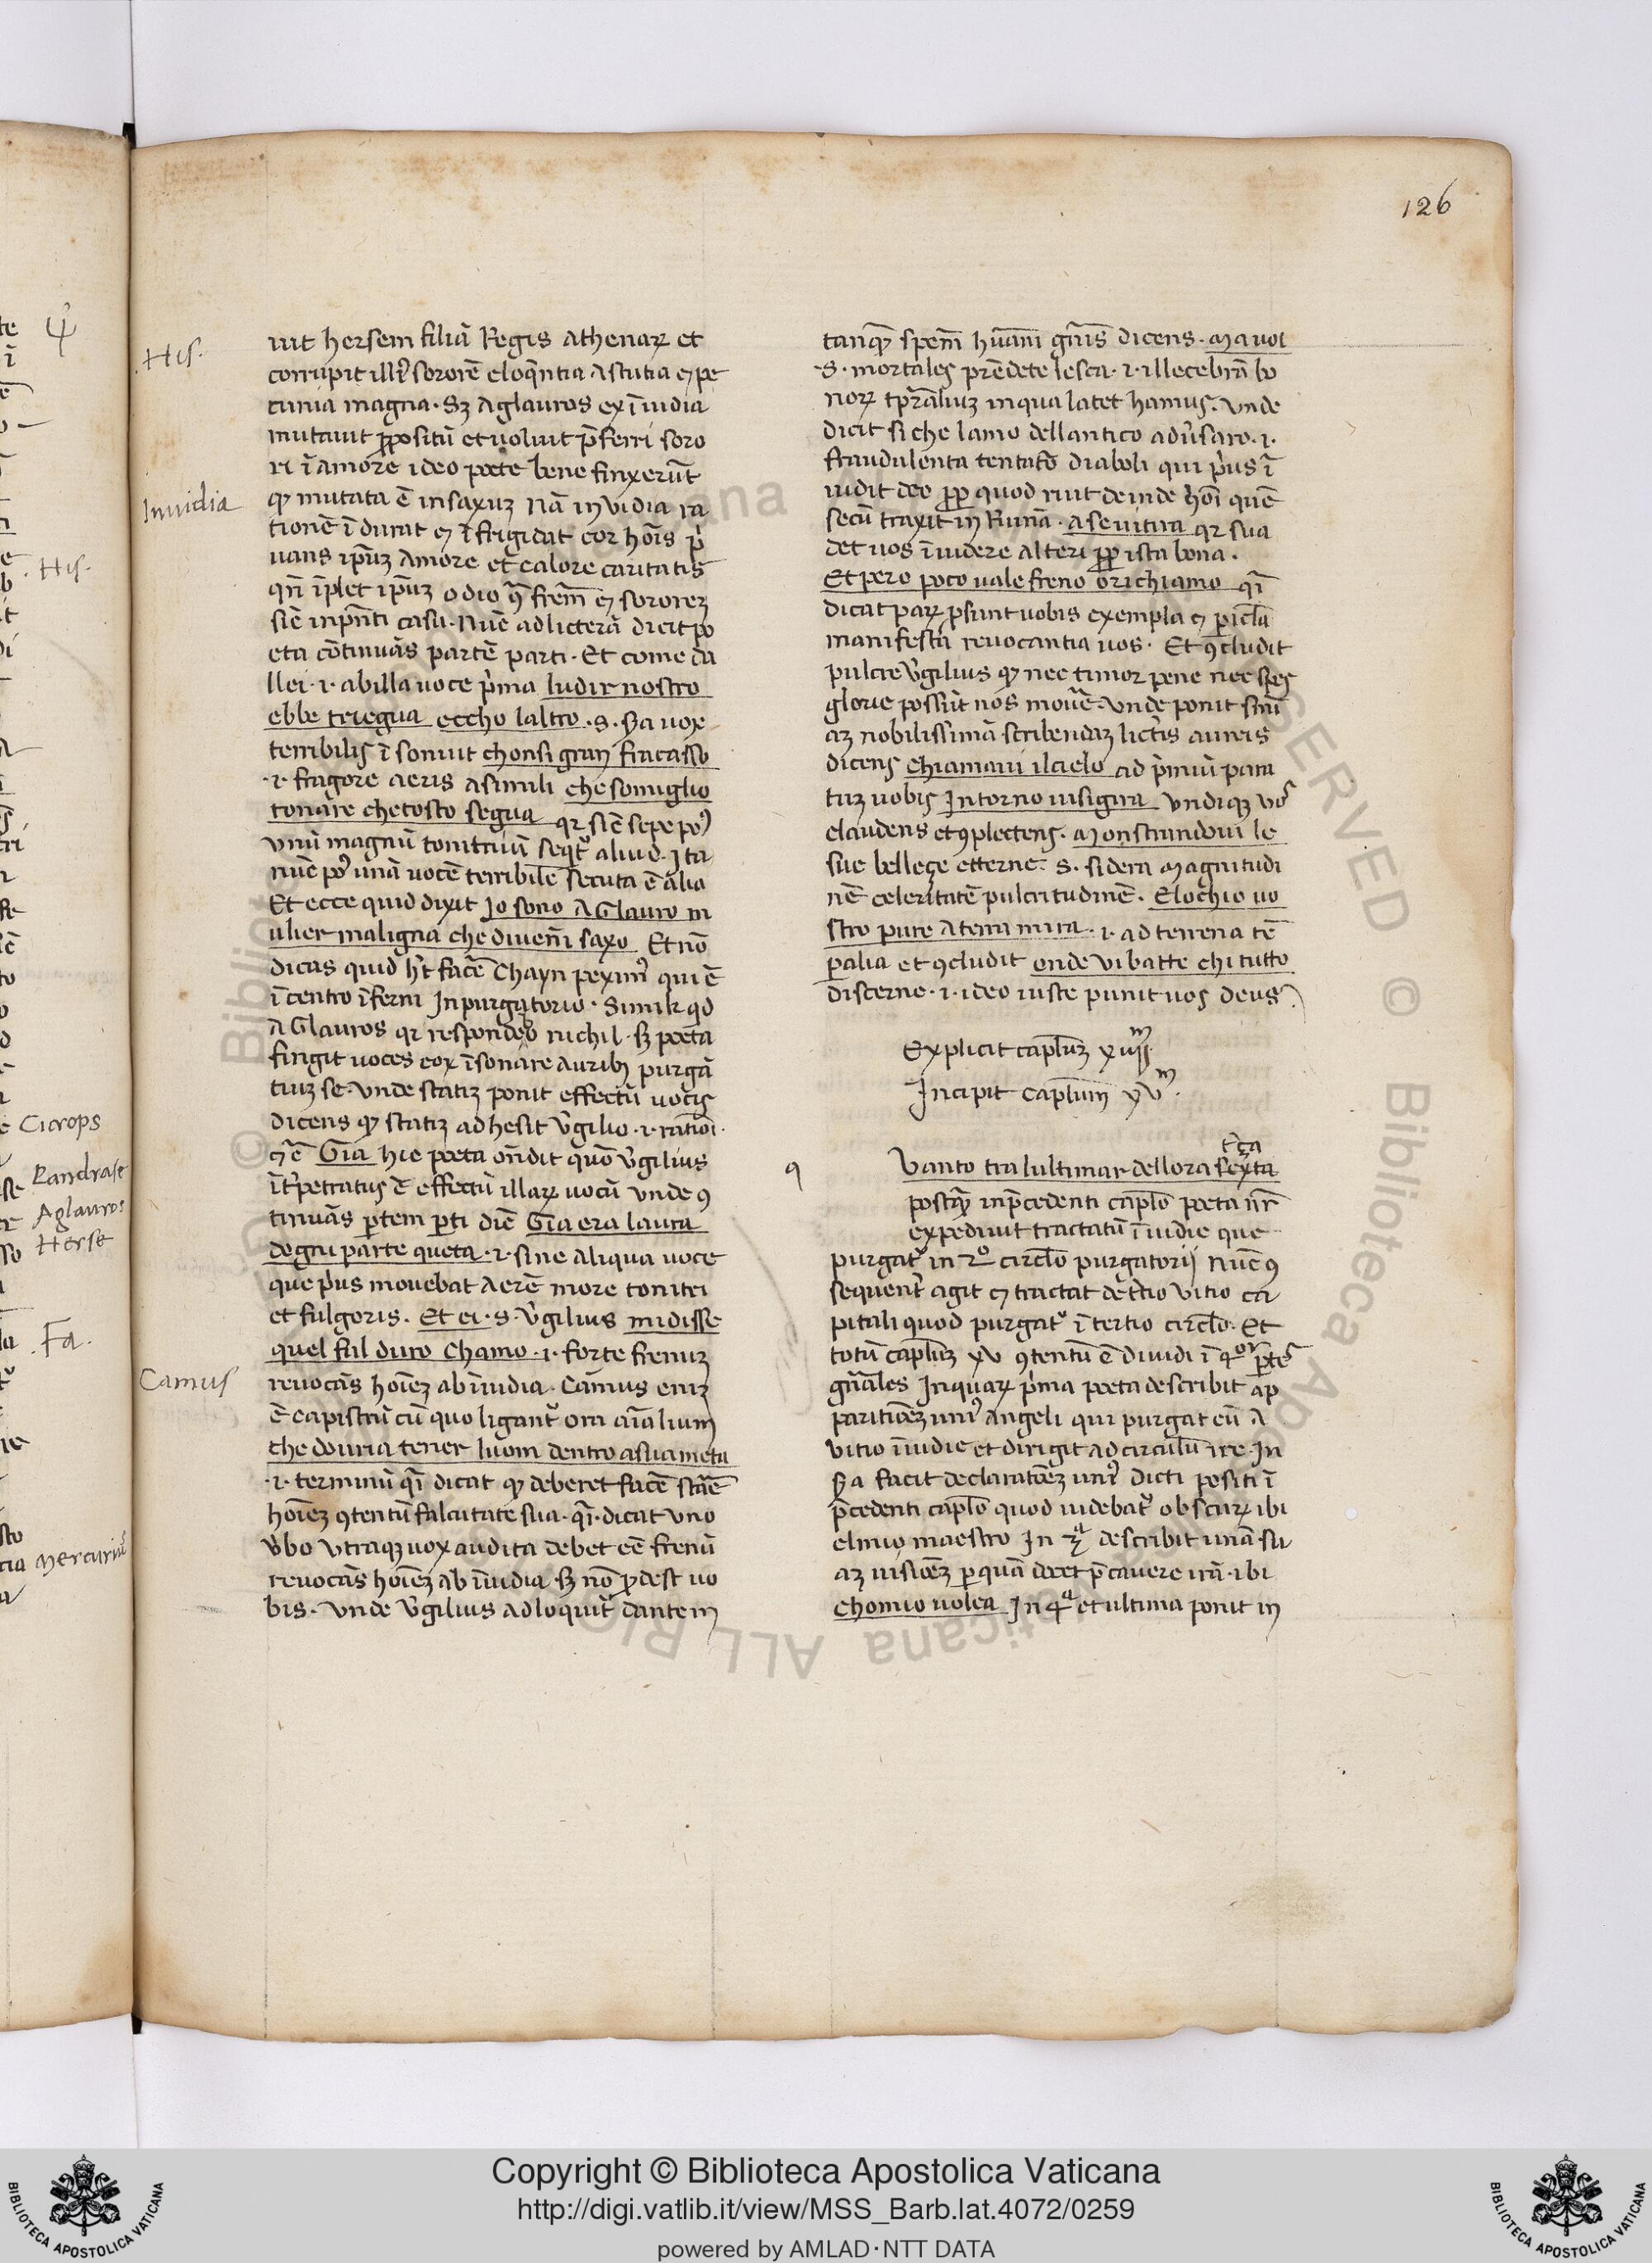 126
His.
Inuidia
Camus
uit hersem filiā Regis Athenaꝝ et
corrupit illiꝰ sororē eloq̄ntia Astutia ⁊ pe
cunia magna. Sꝫ Aglauros ex īuidia
mutauit ꝓpositū et uoluit p̄ferri soro
ri ī amore ideo poete bene finxerūt
ꝙ mutata ē in saxuꝫ Nā inuidia ra
tionē īdurat ⁊ īfrigidat cor hoīs p̄
uans ip̄uꝫ Amore et calore caritatis
qn̄ īplet ip̄uꝫ odio ꝯ̄ frēm ⁊ sororeꝫ
sic̄ in pn̄ti casu. Nūc ad licterā dicit po
eta cōtinuās partē parti. Et come da
llei .i. ab illa uoce p̄ma ludir nostro
ebbe triegua eccho laltro .s. 2a uox
terribilis īsonuit chon si gran fracasso
.i. fragore aeris asimili che somiglio
tonare che tosto segua qꝛ sic̄ sepe poꝰ
unū magnū tonitruū seqt̄ʳ aliud. Ita
nūc poꝰ unā uocē terribilē secuta ē alia
Et ecce quid dixit Io sono Aglauro m
ulier maligna che diuen̄i saxo Et nō
dicas quid ht̄ facē Chayn pexim9 qui ē
ī centro īferni In purgatorio. Simil'r qd̄
Aglauros qꝛ respondeo nichil. sꝫ poeta
fingit uoces eoꝝ īsonare auribꝫ purgā
tiuꝫ se. Vnde statiꝫ ponit effectū uocis
dicens ꝙ statiꝫ adhesit v̄gilio .i. ratiōi.
⁊c̄ Gia hic poeta on̄dit quō v̄gilius
īt̄petratus ē effectū illaꝝ uocū unde ꝯ
tinuās ꝑtem ꝑti dic̄ Gia era laura
degni parte queta .i. sine aliqua uoce
que p̄us mouebat Aerē more tonitri
et fulgoris. Et ei .s. v̄gilius mi disse
quel ful duro Chamo .i. forte frenuꝫ
reuocās hoīeꝫ ab īuidia. Camus eniꝫ
ē capistrū cū quo ligant̄ʳ ora aīalium
che douria tener luom dentro a sua meta
.i. terminū q̄i dicat ꝙ deberet facē stāē
hoīeꝫ ꝯtentū falcutate sua. q̄i dicat uno
v̄bo Vtraqꝫ uox audita debet eē frenū
reuocās hoīeꝫ ab īuidia. sꝫ nō ꝓdest uo
bis. Vnde v̄gilius adloquit̄ʳ dantem
tanqꝫ spem̄ hūani gn̄is dicens. Ma uoi
.s. mortales prēdete lesca .i. illecebrā bo
noꝝ tp̄raliuꝫ in qua latet hamus. Vnde
dicit si che lamo dellantico adūsaro .i.
fraudulenta tentatō diaboli qui p̄us ī
uidit deo ꝓp̄ quod ruit deinde hōi quē
secū traxit in Ruinā. A se ui tira qꝛ sua
det uos īuidere alteri ꝓp̄ ista bona.
Et pero poco uale freno o richiamo q̄i
dicat paꝝ ꝓsunt uobis exempla ⁊ pic̄la
manifesta reuocantia uos. Et ꝯcludit
pulcre v̄gilius ꝙ nec timor pene nec spes
glorie possūt nos mouē. Vnde ponit sniā
aꝫ nobilissimā scribendaꝫ lict̄is aureis
dicens Chiamaui il cielo ad p̄miū para
tuꝫ uobis Intorno ui si gira Vndiqꝫ vos
claudens et ꝯplectens. Monstrandoui le
sue belleçe etterne .s. sidera Magnitudi
nē celeritatē pulcritudinē. E lochio uo
stro pure a terra mira .i. ad terrena tē
ꝑalia et ꝯcludit onde ui batte chi tutto
discerne .i. ideo iuste punit uos deus
Explicit capl̄uꝫ xiiijᵐ
Incipit capl̄um xvᵐ.
q
t̄ça
Vanto tra lultimar dellora sexta
postqꝫ in p̄cedenti capl̄o poeta nr̄
expediuit tractatū īuidie que
purgat̄ʳ in 2º circl̄o purgatorij Nūc ꝯ
sequent̄ agit ⁊ tractat de t̄tio vitio ca
pitali quod purgat̄ʳ ī tertio circl̄o. Et
totū capl̄uꝫ xv ꝯtentū ē diuidi ī 4ºʳ ꝑtes
gn̄ales In quaꝝ p̄ma poeta describit ap
paritiōeꝫ uniꝰ Angeli qui purgat eū A
vitio īuidie et dirigit ad circulū ire. In
2a facit declaratōeꝫ uniꝰ dicti positi ī
p̄cedenti capl̄o quod uidebat̄ʳ obscuꝝ ibi
el mio maestro In 3ᵃ describit unā su
aꝫ uisiōeꝫ ꝑ quā docet p̄cauere irā. ibi
Chomio uolea In 4ᵃ et ultima ponit in
His.
Cicrops
Pandrase
Aglauros
Herse
Fa.
Mercuriꝰ
Copyright © Biblioteca Apostolica Vaticana
http://digi.vatlib.it/view/MSS_Barb.lat.4072/0259
powered by AMLAD·NTT DATA
BIBLIOTECA APOSTOLICA VATICANA
BIBLIOTECA APOSTOLICA VATICANA